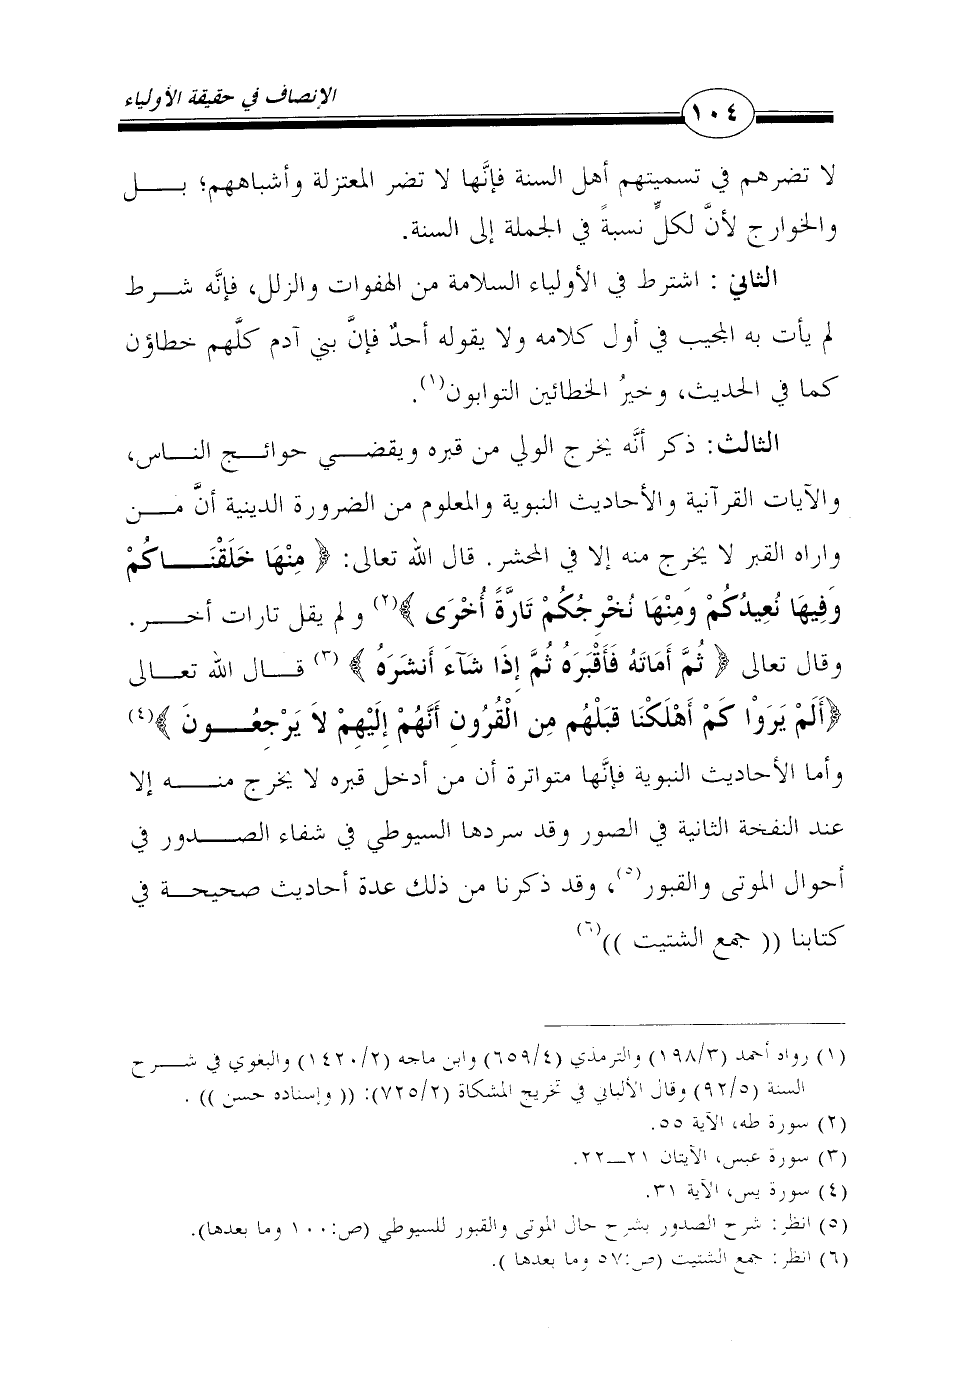 الإنصاف في حقيقة الأولياء
١٠٤
لا تضرهم في تسميتهم أهل السنة فإنَّها لا تضر المعتزلة وأشباههم؛ بـــل
والخوارج لأنَّ لكلٍّ نسبةً في الجملة إلى السنة.
الثاني : اشترط في الأولياء السلامة من الهفوات والزلل، فإنَّه شـــرط
لم يأت به المجيب في أول كلامه ولا يقوله أحدٌ فإنَّ بني آدم كلَّهم خطاؤن
كما في الحديث، وخيرُ الخطائين التوابون(١).
الثالث: ذكر أنَّه يخرج الولي من قبره ويقضـــي حوائـــج النـــاس،
والآيات القرآنية والأحاديث النبوية والمعلوم من الضرورة الدينية أنَّ مـــن
واراه القبر لا يخرج منه إلا في المحشر. قال الله تعالى: ﴿ مِنْهَا خَلَقْنَـــاكُمْ
وَفِيهَا نُعِيدُكُمْ وَمِنْهَا نُخْرِجُكُمْ تَارَةً أُخْرَى ﴾(٢) و لم يقل تارات أخـــر.
وقال تعالى ﴿ ثُمَّ أَمَاتَهُ فَأَقْبَرَهُ ثُمَّ إِذَا شَآءَ أَنشَرَهُ ﴾ (٣) قـــال الله تعـــالى
﴿أَلَمْ يَرَوْا كَمْ أَهْلَكْنَا قَبْلَهُم مِنِ الْقُرُونِ أَنَّهُمْ إِلَيْهِمْ لاَ يَرْجِعُـــونَ ﴾(٤)
وأما الأحاديث النبوية فإنَّها متواترة أن من أدخل قبره لا يخرج منـــه إلا
عند النفخة الثانية في الصور وقد سردها السيوطي في شفاء الصـــدور في
أحوال الموتى والقبور(٥)، وقد ذكرنا من ذلك عدة أحاديث صحيحـــة في
كتابنا (( جمع الشتيت ))(٦)
(١) رواه أحمد (١٩٨/٣) والترمذي (٦٥٩/٤) وابن ماجه (١٤٢٠/٢) والبغوي في شـــرح
السنة (٩٢/٥) وقال الألباني في تخريج المشكاة (٧٢٥/٢): (( وإسناده حسن )) .
(٢) سورة طه، الآية ٥٥.
(٣) سورة عبس، الآيتان ٢١ــ٢٢.
(٤) سورة يس، الآية ٣١.
(٥) انظر: شرح الصدور بشرح حال الموتى والقبور للسيوطي (ص:١٠٠ وما بعدها).
(٦) انظر: جمع الشتيت (ص:٥٧ وما بعدها ).